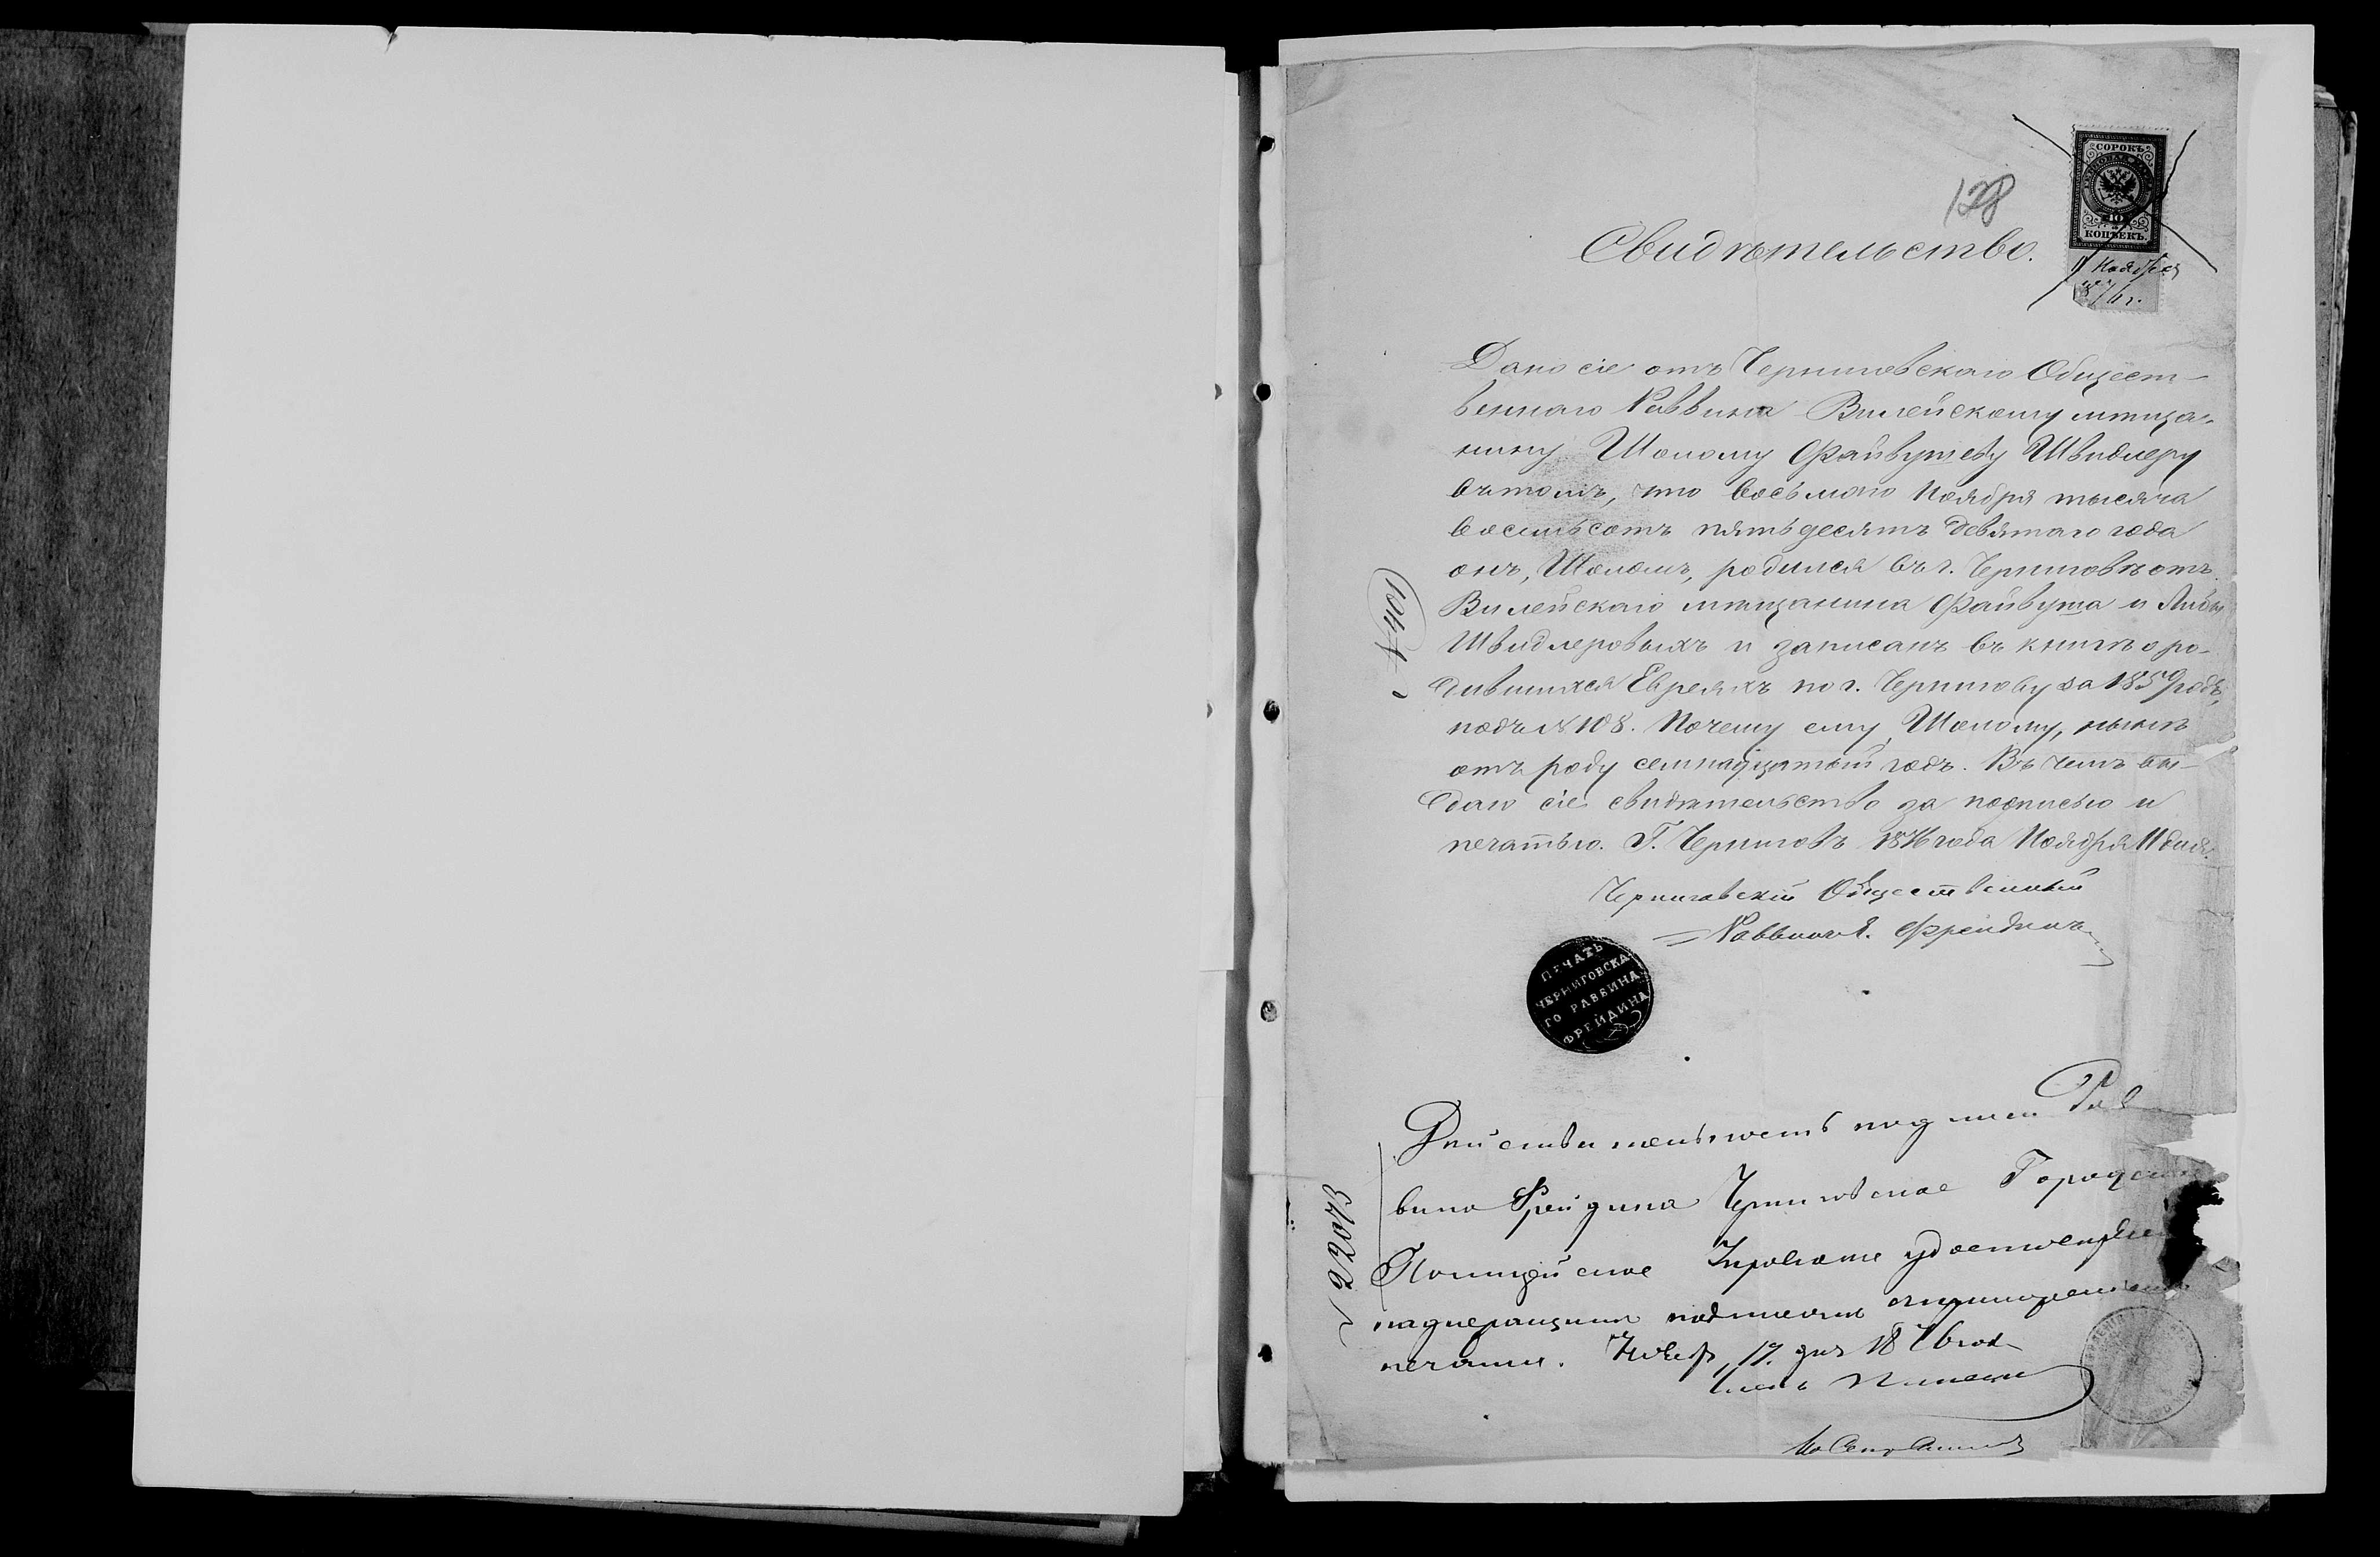 128
СОРОКЪ
40
КОПѢЕКЪ.
11 Ноября
1876 г.
Свидѣтельство.
Дано сіе отъ Черниговскаго Общест-
веннаго Раввина Вилейскому мѣща-
нину Шолому Файвушеву Швидлеру
въ томъ, что восьмого Ноября тысяча
восемьсотъ пятьдесятъ девятаго года
онъ, Шоломъ, родился въ г. Черниговѣ отъ
Вилейскаго мѣщанина Файвуша и Либы
Швидлеровыхъ и записанъ въ книгѣ о ро-
дившихся Евреяхъ по г. Чернигову за 1859 годъ,
подъ № 108. Почему ему, Шолому, нынѣ
отъ роду семнадцатый годъ. Въ чемъ вы-
даю сіе свидѣтельство за подписью и
печатью. Г. Черниговъ 1876 года Ноября 11 дня.
№ 104
Черниговскій Общественный
Раввинъ Я. Фрейдинъ
ПЕЧАТЬ
ЧЕРНИГОВСКА
ГО РАВВИНА
ФРЕЙДИНА
Дѣйствительность подписи Рав
вина Фрейдина Черниговское Городское
Полицейское Управленіе удостовѣряетъ
надлежащимъ подписомъ съ приложеніемъ
печати. Ноября 17 дня 1876 года
№ 22073
Членъ